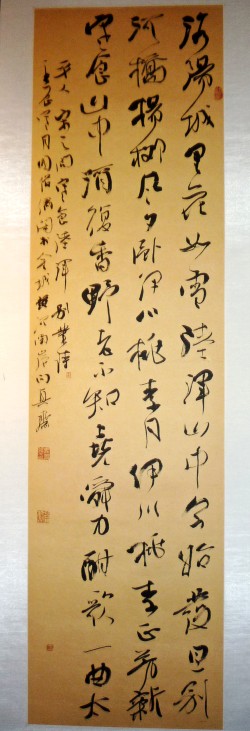 洛陽城里花如雪陸渾山中今始發旦別
河橋楊柳風夕臥伊川桃李月伊川桃李正芳新
寒食山中酒復春野老不知堯舜力酣歌一曲太
平人 宋之問寒食陸渾別業詩